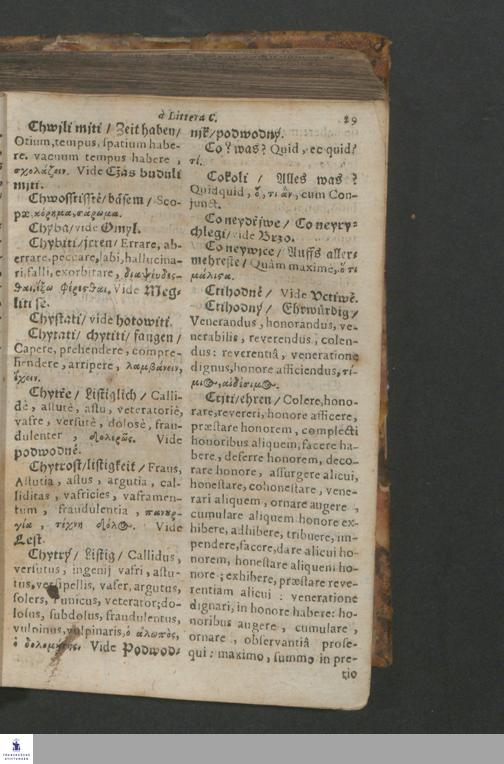 à Littera C.
29
Chwjli mjti / Zeit haben /
Otium, tempus, spatium habe-
re. vacuum tempus habere,
σχολάζειν. Vide Cžas buduli
mjti.
Chwosstisstě / bäsem / Sco-
pæ, κόρημα, σάρωμα.
Chyba / vide Omyl.
Chybiti / jrren / Errare, ab-
errare, peccare, labi, hallucina-
ri, falli, exorbitare,
Vide Meg-
liti se.
Chystati / vide hotowiti.
Chytati / chytiti / fangen /
Capere, prehendere, compre-
hendere, arripere, λαμβάνειν,
ἔχειν.
Chytře / Listiglich / Calli-
dè, astutè, astu, veteratoriè,
vafre, versutè, dolosè, frau-
dulenter, Vide
podwodně.
Chytrost / listigkeit / Fraus,
Astutia, astus, argutia, cal-
liditas, vafricies, vaframen-
tum, fraudulentia, πανουρ-
γία, τέχνη Vide
Lest.
Chytrý / Listig / Callidus,
versutus, ingenij vafri, astu-
tus, versipellis, vafer, argutus,
solers, Punicus, veterator, do-
losus, subdolus, fraudulentus,
vulpinus, vulpinaris,
Vide Podwod-
njk / podwodný.
Co? was? Quid, ec quid?
τί.
Cokoli / Alles was?
Quidquid, cum Con-
junct.
Co neydřjwe / Co neyry-
chlegi / vide Brzo.
Co neywjce / Auffs aller-
mehreste / Quàm maximè, ὅτι
μάλιστα.
Ctihodně / Vide Vctiwě.
Ctihodný / Ehrwürdig /
Venerandus, honorandus, ve-
nerabilis, reverendus, colen-
dus: reverentiâ, veneratione
dignus, honore afficiendus,
Ctjti / ehren / Colere, hono-
rare, revereri, honore afficere,
præstare honorem, complecti
honoribus aliquem, facere ha-
bere, deferre honorem, deco-
rare honore, assurgere alicui,
honestare, cohonestare, vene-
rari aliquem, ornare augere,
cumulare aliquem honore ex-
hibere, adhibere, tribuere, im-
pendere, facere, dare alicui ho-
norem, honestare aliquem ho-
nore; exhibere, præstare reve-
rentiam alicui: veneratione
dignari, in honore habere: ho-
noribus augere, cumulare,
ornare, observantiâ prose-
qui: maximo, summo in pre-
tio
FRANCKESCHE
STIFTUNGEN